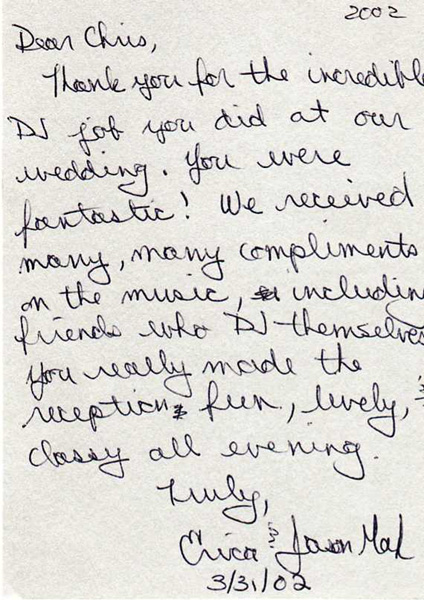 2002
Dear Chris,
Thank you for the incredible
DJ job you did at our
wedding. You were
fantastic! We received
many, many compliments
on the music, including
friends who DJ themselves
You really made the
reception fun, lively, &
classy all evening.
Truly,
Erica & Jason Mak
3/31/02